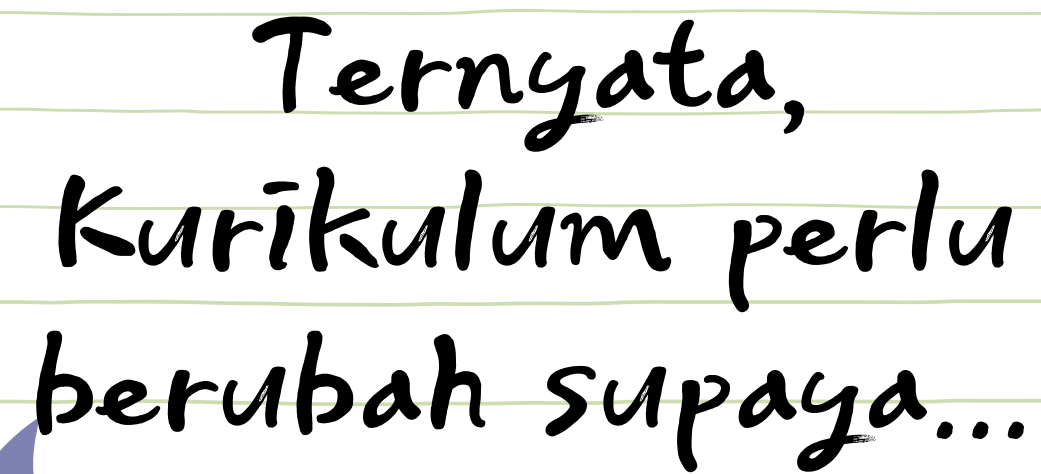 Ternyata,
Kurikulum perlu
berubah supaya...